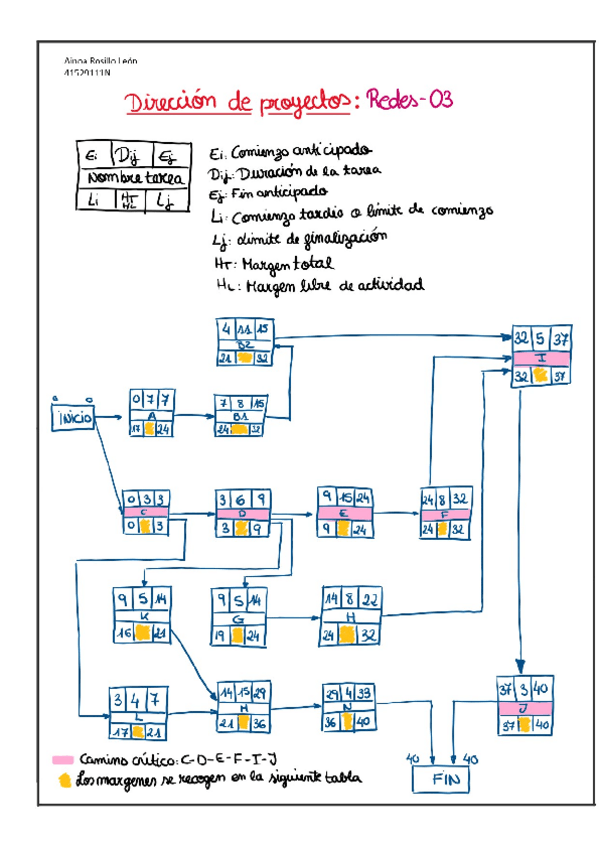 Ainoa Rosillo León
41529111N
Dirección de proyectos: Redes-03
Ei Dij Ej
Nombre tarea
Li HT HL Lj
Ei: Comienzo anticipado
Dij: Duración de la tarea
Ej: Fin anticipado
Li: Comienzo tardío o límite de comienzo
Lj: Límite de finalización
HT: Margen total
HL: Margen libre de actividad
4 11 15
B2
21 32
32 5 37
I
32 37
0 0
INICIO
0 7 7
A
17 24
7 8 15
B1
24 32
0 3 3
C
0 3
3 6 9
D
3 9
9 15 24
E
9 24
24 8 32
F
24 32
9 5 14
K
16 21
9 5 14
G
19 24
14 8 22
H
24 32
3 4 7
L
17 21
14 15 29
M
21 36
29 4 33
N
36 40
37 3 40
J
37 40
40 40
FIN
Camino crítico: C-D-E-F-I-J
Los margenes se recogen en la siguiente tabla